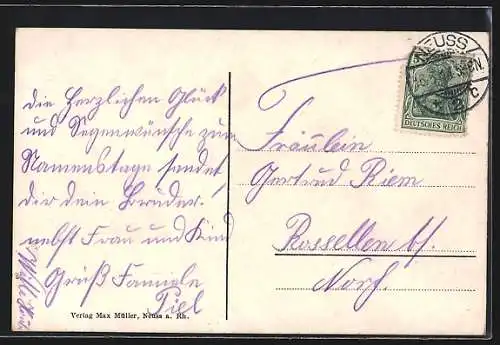 die Herzlichen Glück
und Segenwünsche zum
Namenstage sendet
dir dein Bruder
nebst Frau und Kind
Gruß Familie
Piel
Verlag Max Müller, Neuss a. Rh.
NEUSS
DEUTSCHES REICH
Fräulein
Gertrud Riem
Rosellen b/.
Norf.